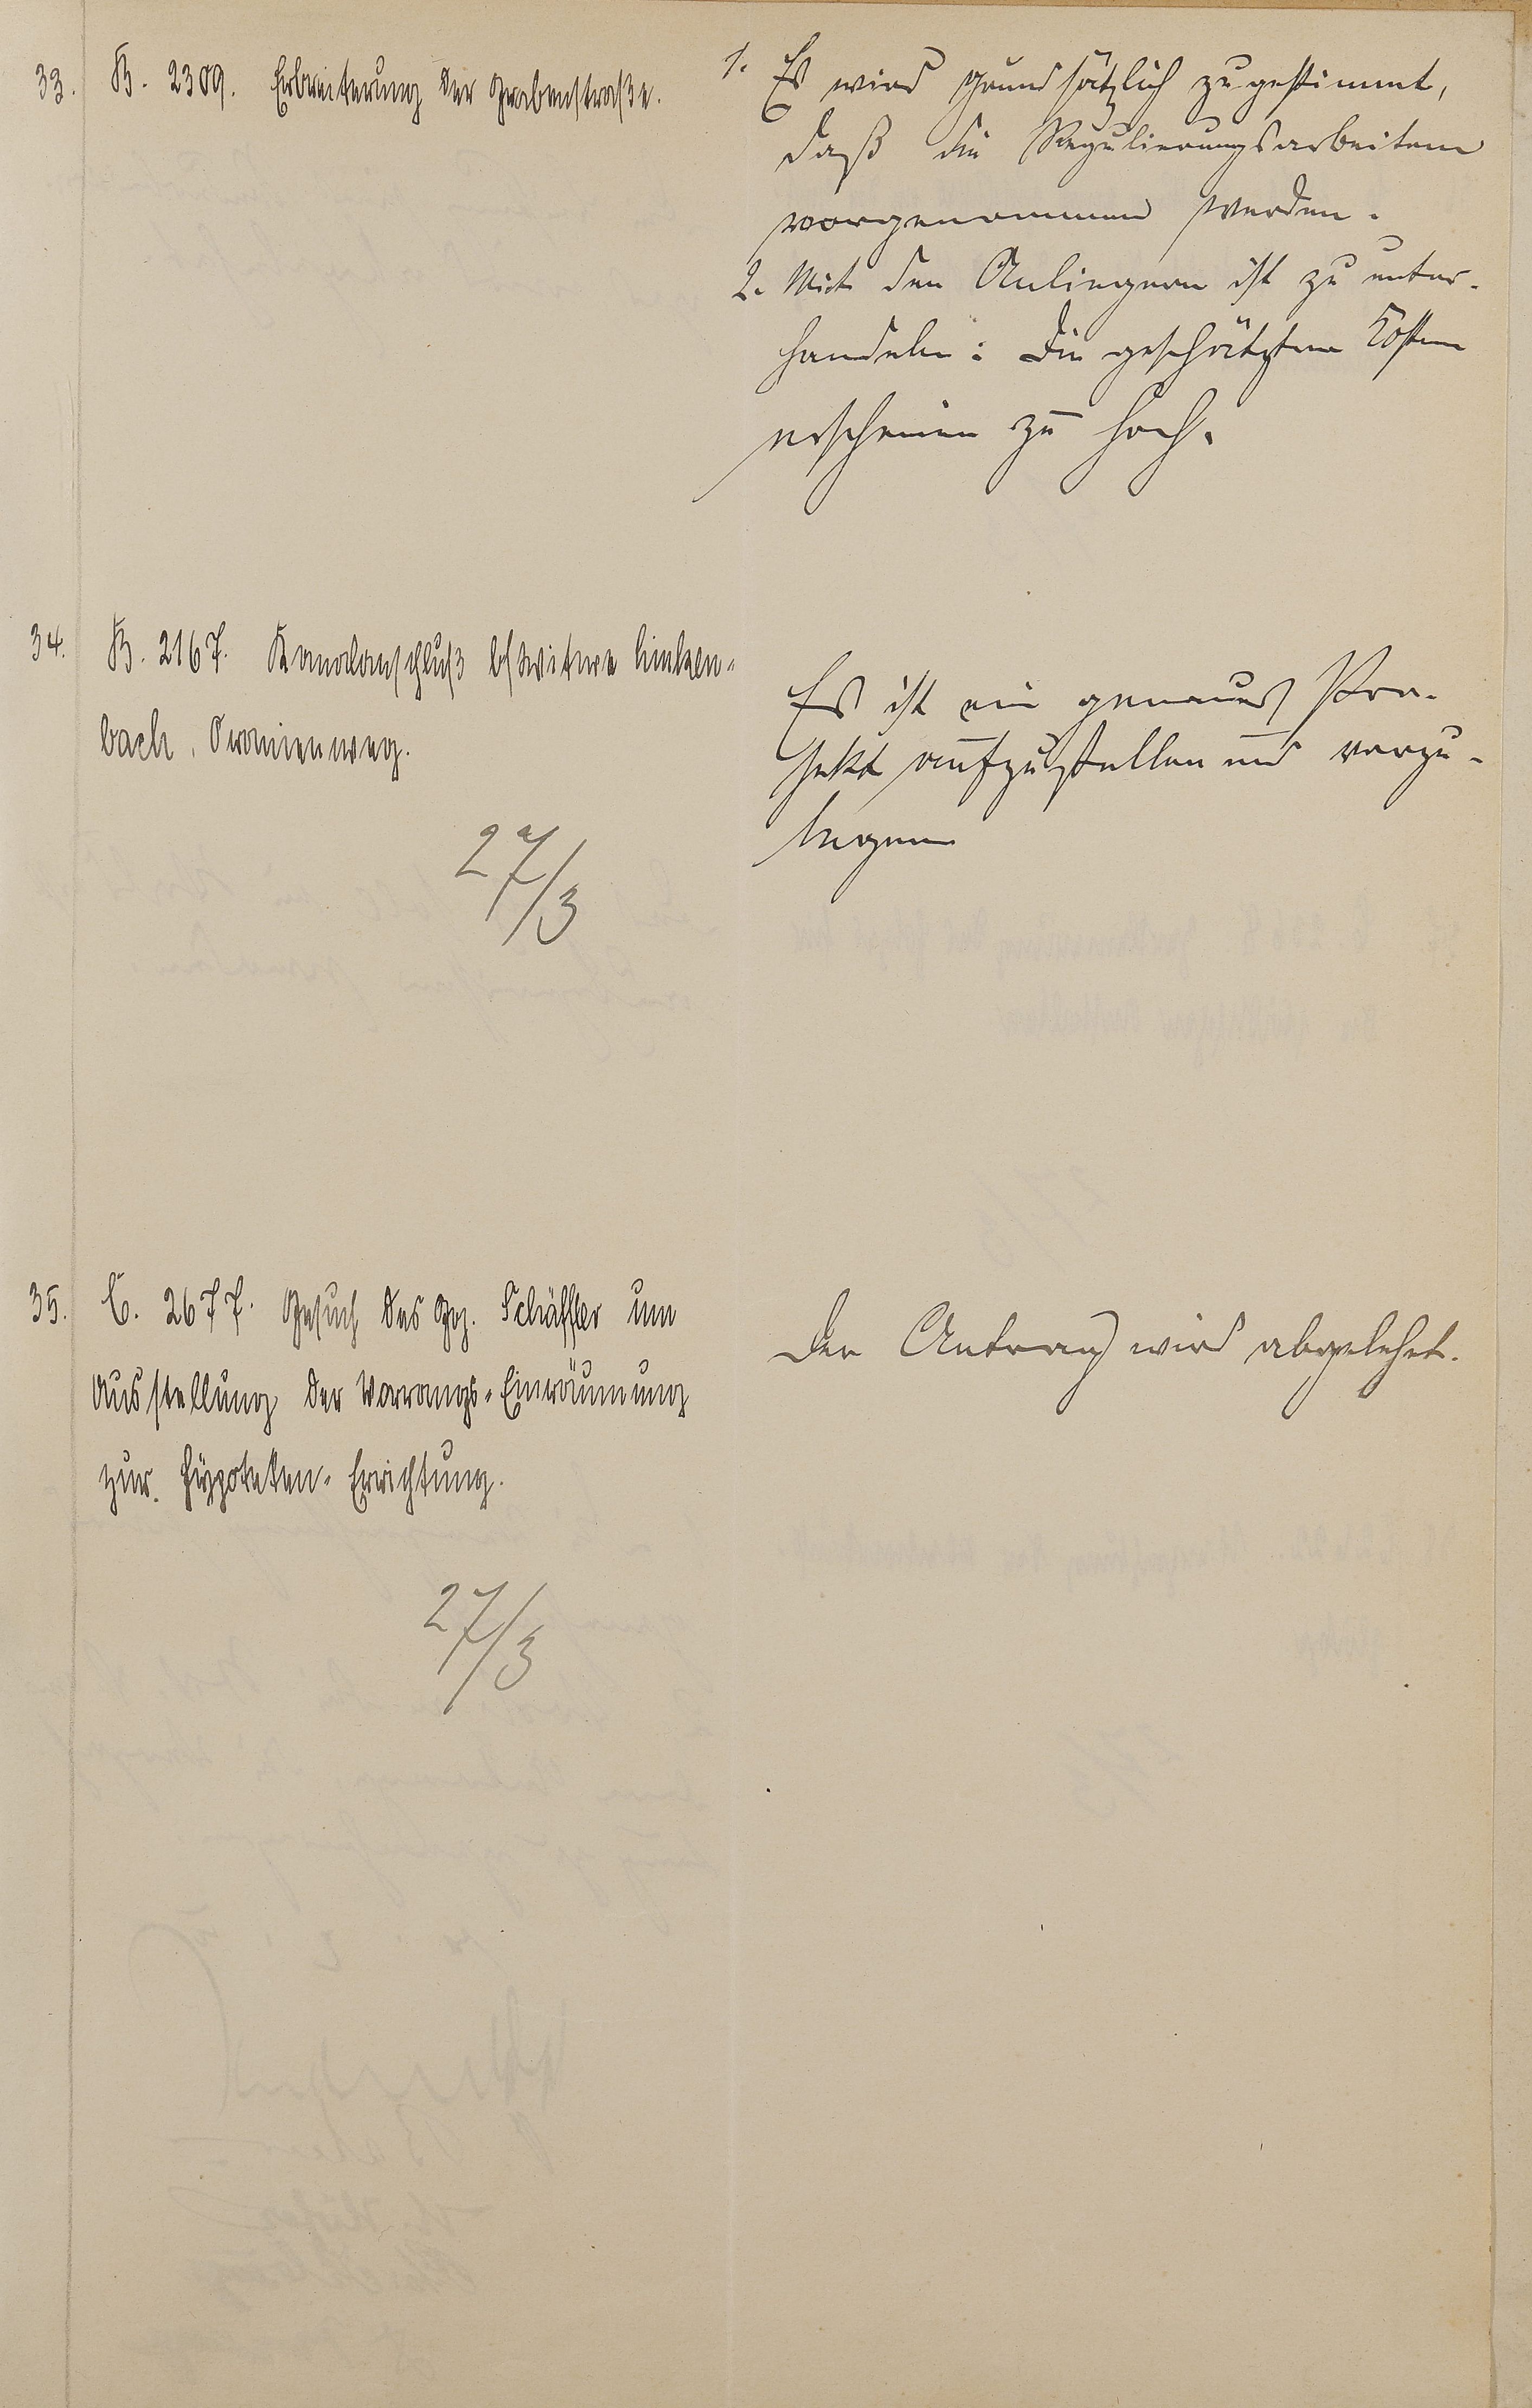 33. B. 2309. Erbreiterung der Grabenstraße.
1. Es wird grundsätzlich zugestimmt,
daß die Regulierungsarbeiten
vorgenommen werden.
2. Mit den Anliegern ist zu unter-
handeln: Die geschätzten Kosten
erscheinen zu hoch.
34. B. 2167. Kanalanschluß Witwe Linken-
bach, Oranienweg.
27/3
Es ist ein genaues Pro-
jekt aufzustellen und vorzu-
legen
35. C. 2677. Gesuch des Gg. Schäffler um
Ausstellung der Vorrangs-Einräumung
zur Hypoteken-Errichtung.
27/3
Der Antrag wird abgelehnt.